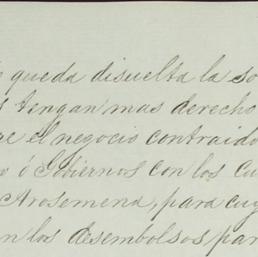 queda disuelta la so
s tengan mas derecho
re el negocio contraido
o ó Gobiernos con los cu
Arosemena, para cuy
n los desembolsos par